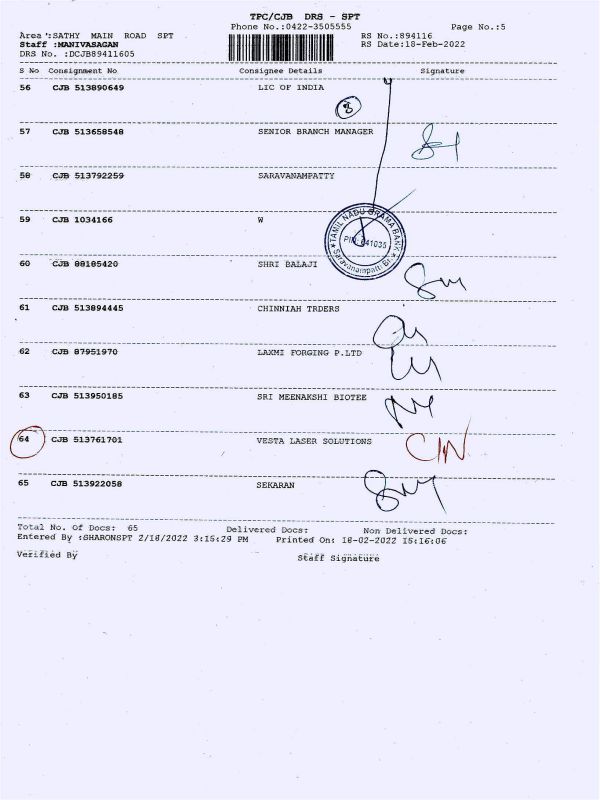 TPC/CJB DRS - SPT
Phone No.:0422-3505555 Page No.:5
Area :SATHY MAIN ROAD SPT RS No.:894116
Staff :MANIVASAGAN RS Date:18-Feb-2022
DRS No. :DCJB89411605
S No Consignment No Consignee Details Signature
56 CJB 513890649 LIC OF INDIA
8
57 CJB 513658548 SENIOR BRANCH MANAGER
58 CJB 513792259 SARAVANAMPATTY
59 CJB 1034166 W
TAMIL NADU GRAMA BANK
PIN-641035
Saravanampatti Br.
60 CJB 88185420 SHRI BALAJI
61 CJB 513894445 CHINNIAH TRDERS
62 CJB 87951970 LAXMI FORGING P.LTD
63 CJB 513950185 SRI MEENAKSHI BIOTEE
64 CJB 513761701 VESTA LASER SOLUTIONS
65 CJB 513922058 SEKARAN
Total No. Of Docs: 65 Delivered Docs: Non Delivered Docs:
Entered By :SHARONSPT 2/18/2022 3:15:29 PM Printed On: 18-02-2022 15:16:06
Verified By Staff Signature